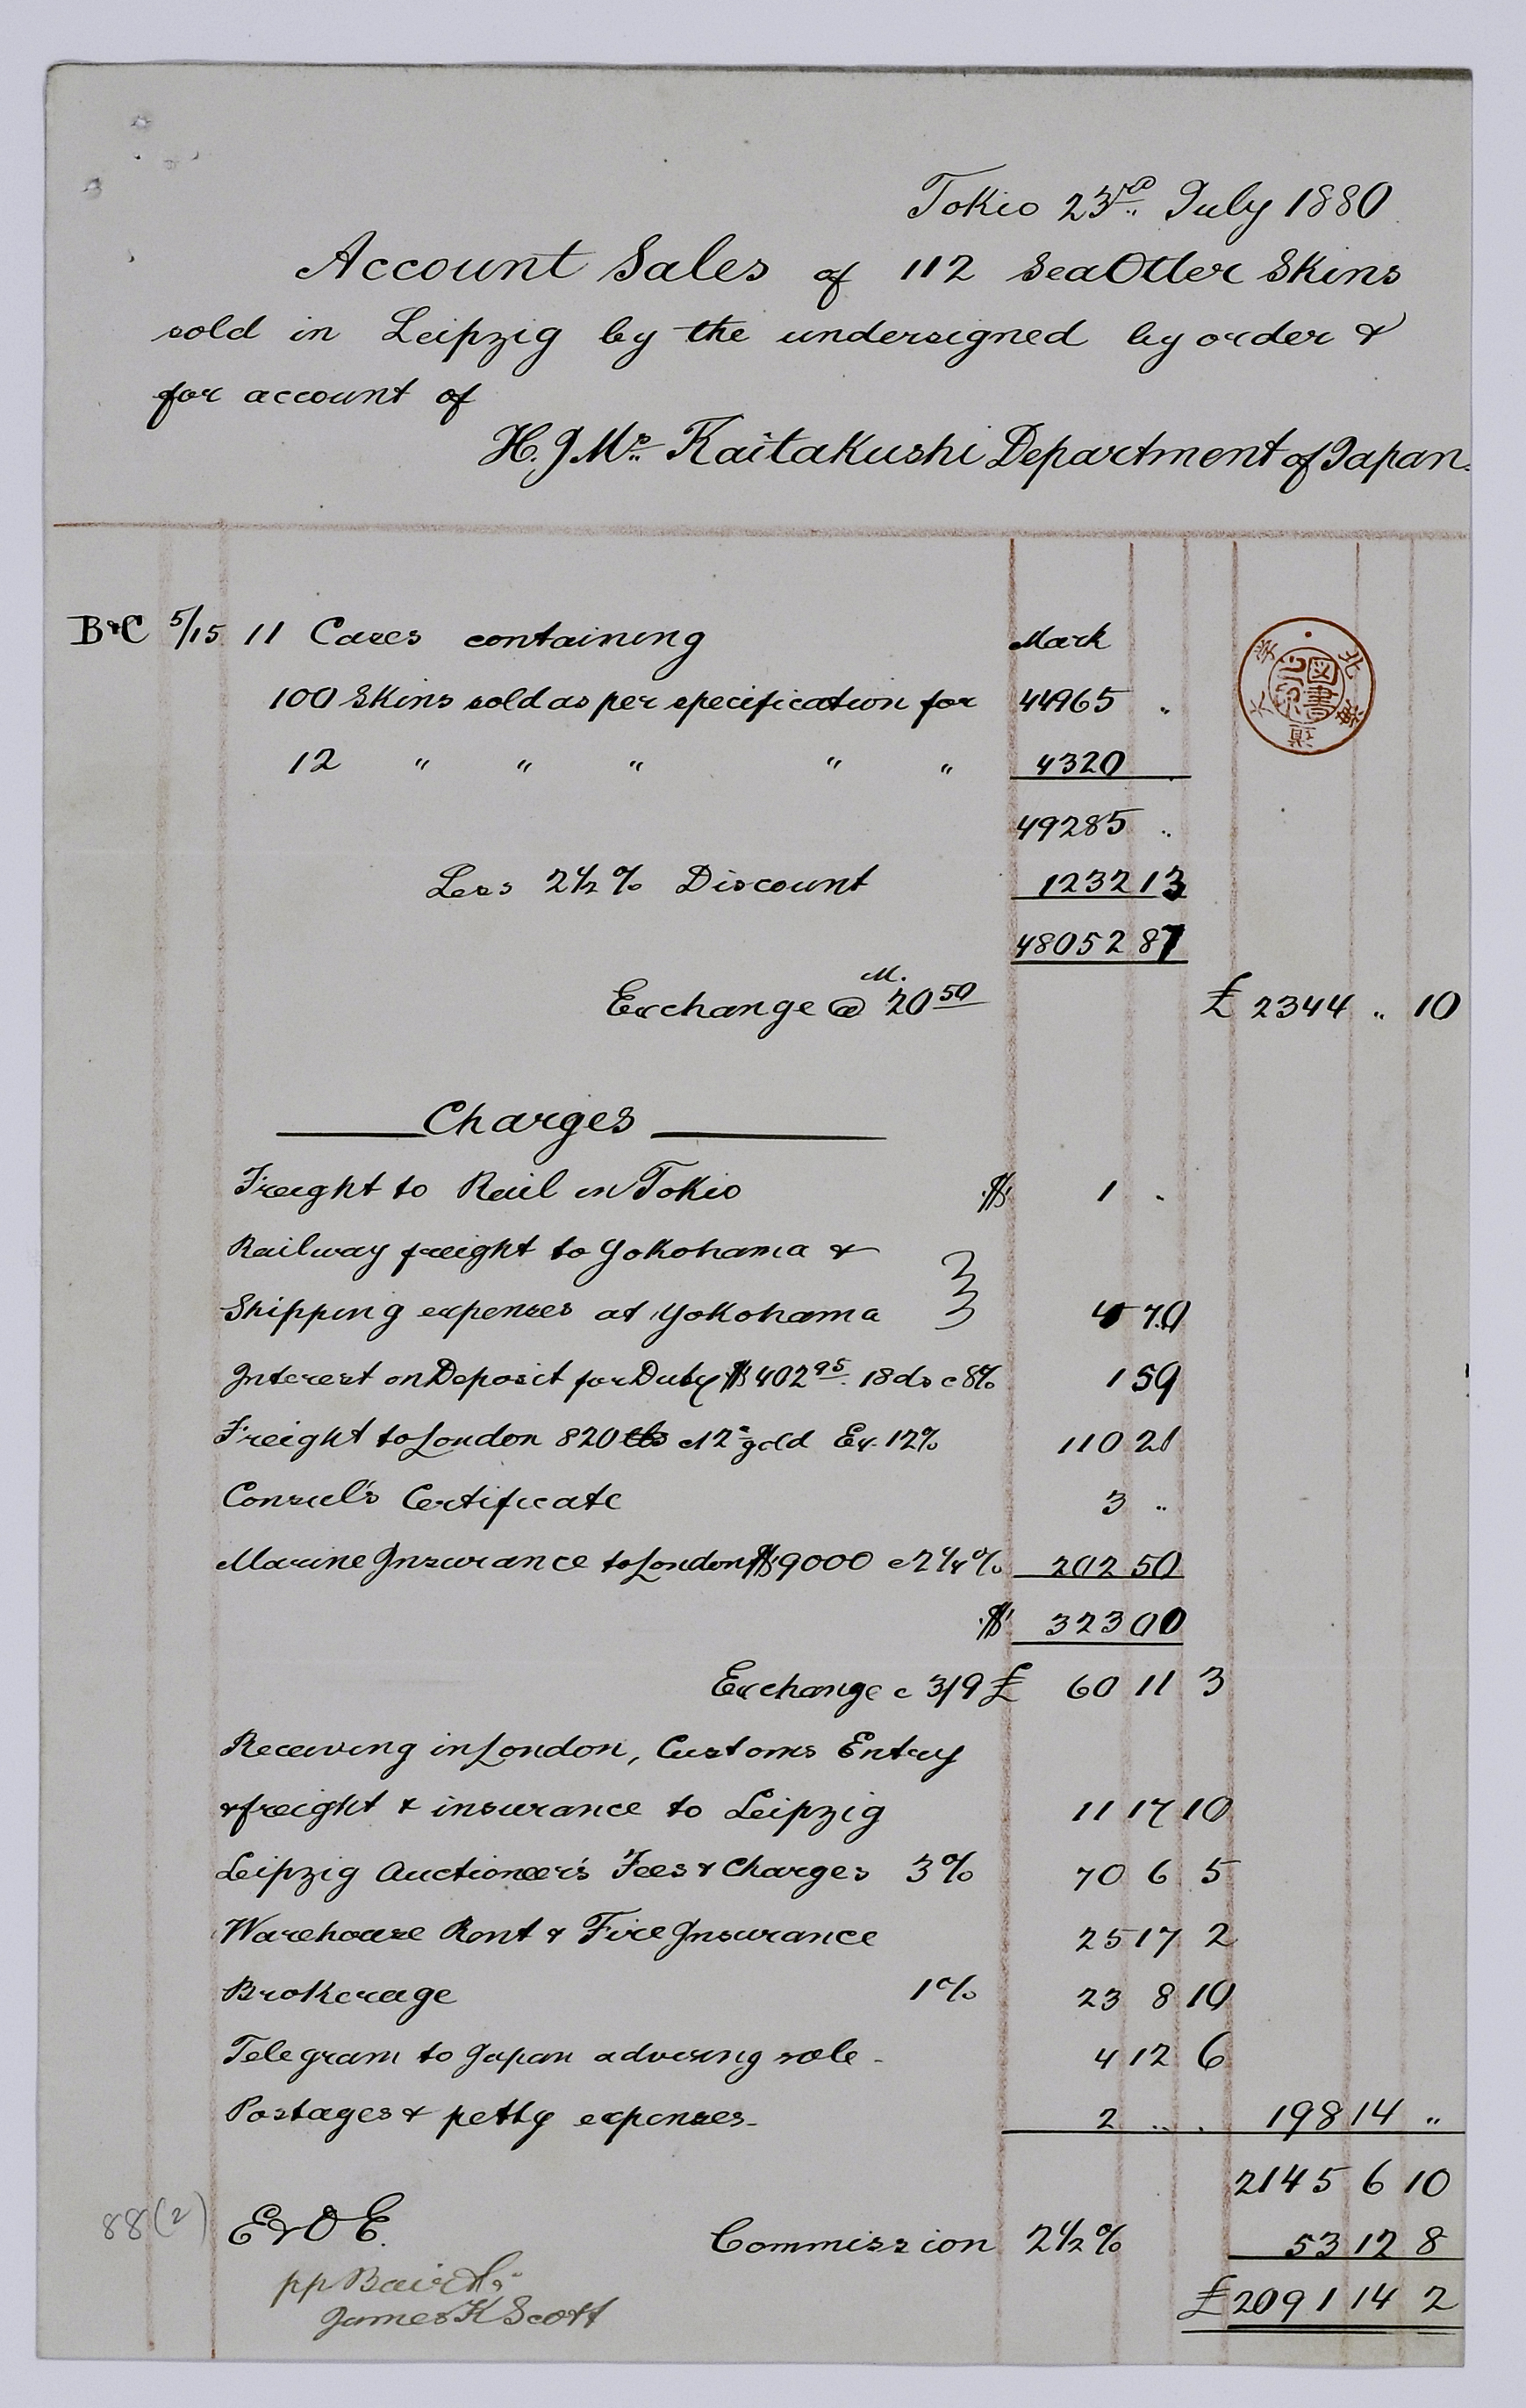 Tokio 23rd July 1880
Account Sales of 112 Sea Otter Skins
sold in Leipzig by the undersigned by order &
for account of
H.I.M's Kaitakushi Department of Japan.
B&C 5/15 11 Cases containing Mark
100 Skins sold as per specification for 44965 "
12 " " " " " 4320
49285 "
Less 2½% Discount 1232 13
48052 87
Exchange @ M. 20 50 £ 2344 " 10
Charges
Freight to Rail in Tokio $ 1 "
Railway freight to Yokohama &
Shipping expenses at Yokohama 4 70
Interest on Deposit for Duty $402 95. 18 ds @ 8% 1 59
Freight to London 820 lbs @ 12 gold Ex. 12% 110 21
Consul's Certificate 3 "
Marine Insurance to London $9000 @ 2¼% 202 50
$ 323 00
Exchange @ 3/9 £ 60 11 3
Receiving in London, Customs Entry
& freight & insurance to Leipzig 11 17 10
Leipzig Auctioneer's Fees & Charges 3% 70 6 5
Warehouse Rent & Fire Insurance 25 17 2
Brokerage 1% 23 8 10
Telegram to Japan advising sale - 4 12 6
Postages & petty expenses - 2 " " 198 14 "
2145 6 10
88(2) E & O E. Commission 2½% 53 12 8
pp Bair & Co
£2091 14 2
James K Scott
北海道大学
図書